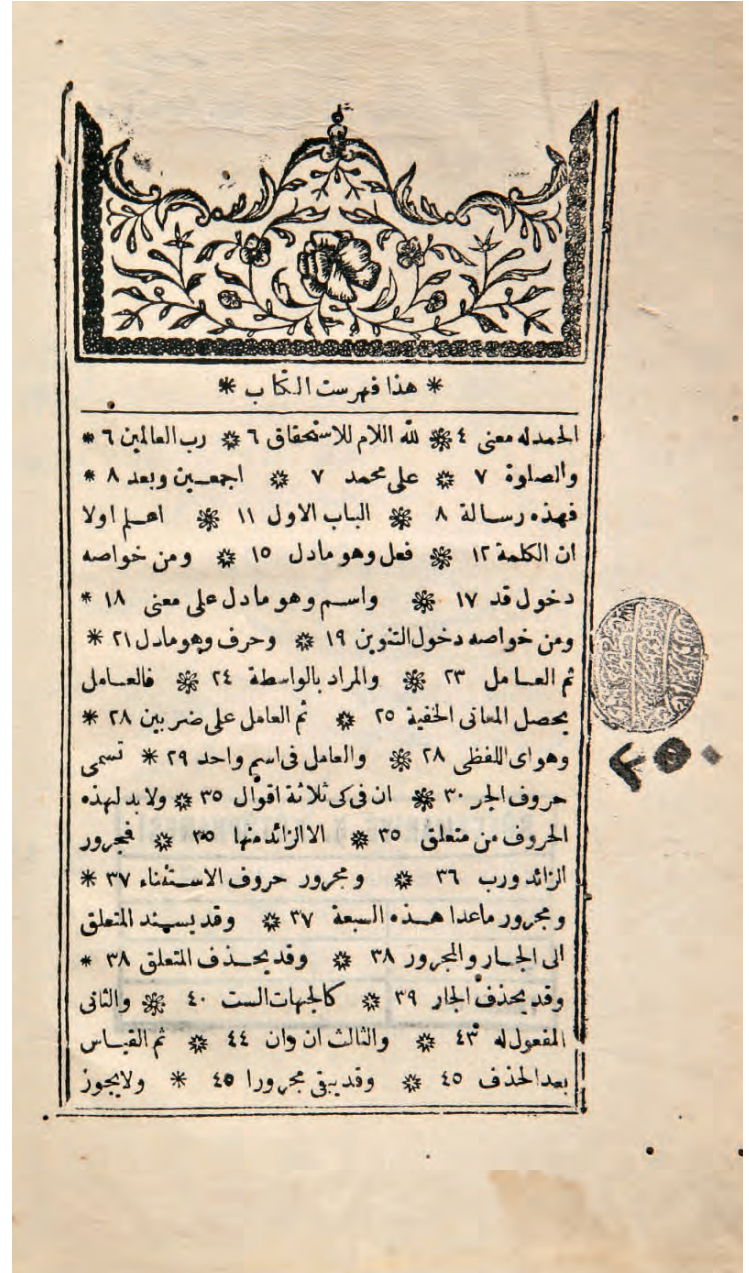 * هذا فهرست الكتاب *
الحمدله معنى ٤ * لله اللام للاستحقاق ٦ * رب العالمين ٦ *
والصلوة ٧ * على محمد ٧ * اجمعين وبعد ٨ *
فهذه رسالة ٨ * الباب الاول ١١ * اعلم اولا
ان الكلمة ١٢ * فعل وهو مادل ١٥ * ومن خواصه
دخول قد ١٧ * واسم وهو مادل على معنى ١٨ *
ومن خواصه دخول التنوين ١٩ * وحرف وهو مادل ٢١ *
ثم العامل ٢٣ * والمراد بالواسطة ٢٤ * فالعامل
يحصل المعانى الخفية ٢٥ * ثم العامل على ضربين ٢٨ *
وهو اى اللفظى ٢٨ * والعامل فى اسم واحد ٢٩ * تسمى
حروف الجر ٣٠ * ان فى كى ثلاثة اقوال ٣٥ * ولا بد لهذه
الحروف من متعلق ٣٥ * الا الزائد منها ٣٥ * فمجرور
الزائد ورب ٣٦ * ومجرور حروف الاستثناء ٣٧ *
ومجرور ماعدا هذه السبعة ٣٧ * وقد يسند المتعلق
الى الجار والمجرور ٣٨ * وقد يحذف المتعلق ٣٨ *
وقد يحذف الجار ٣٩ * كالجهات الست ٤٠ * والثانى
المفعول له ٤٣ * والثالث ان وان ٤٤ * ثم القياس
بعد الحذف ٤٥ * وقد يبقى مجرورا ٤٥ * ولا يجوز